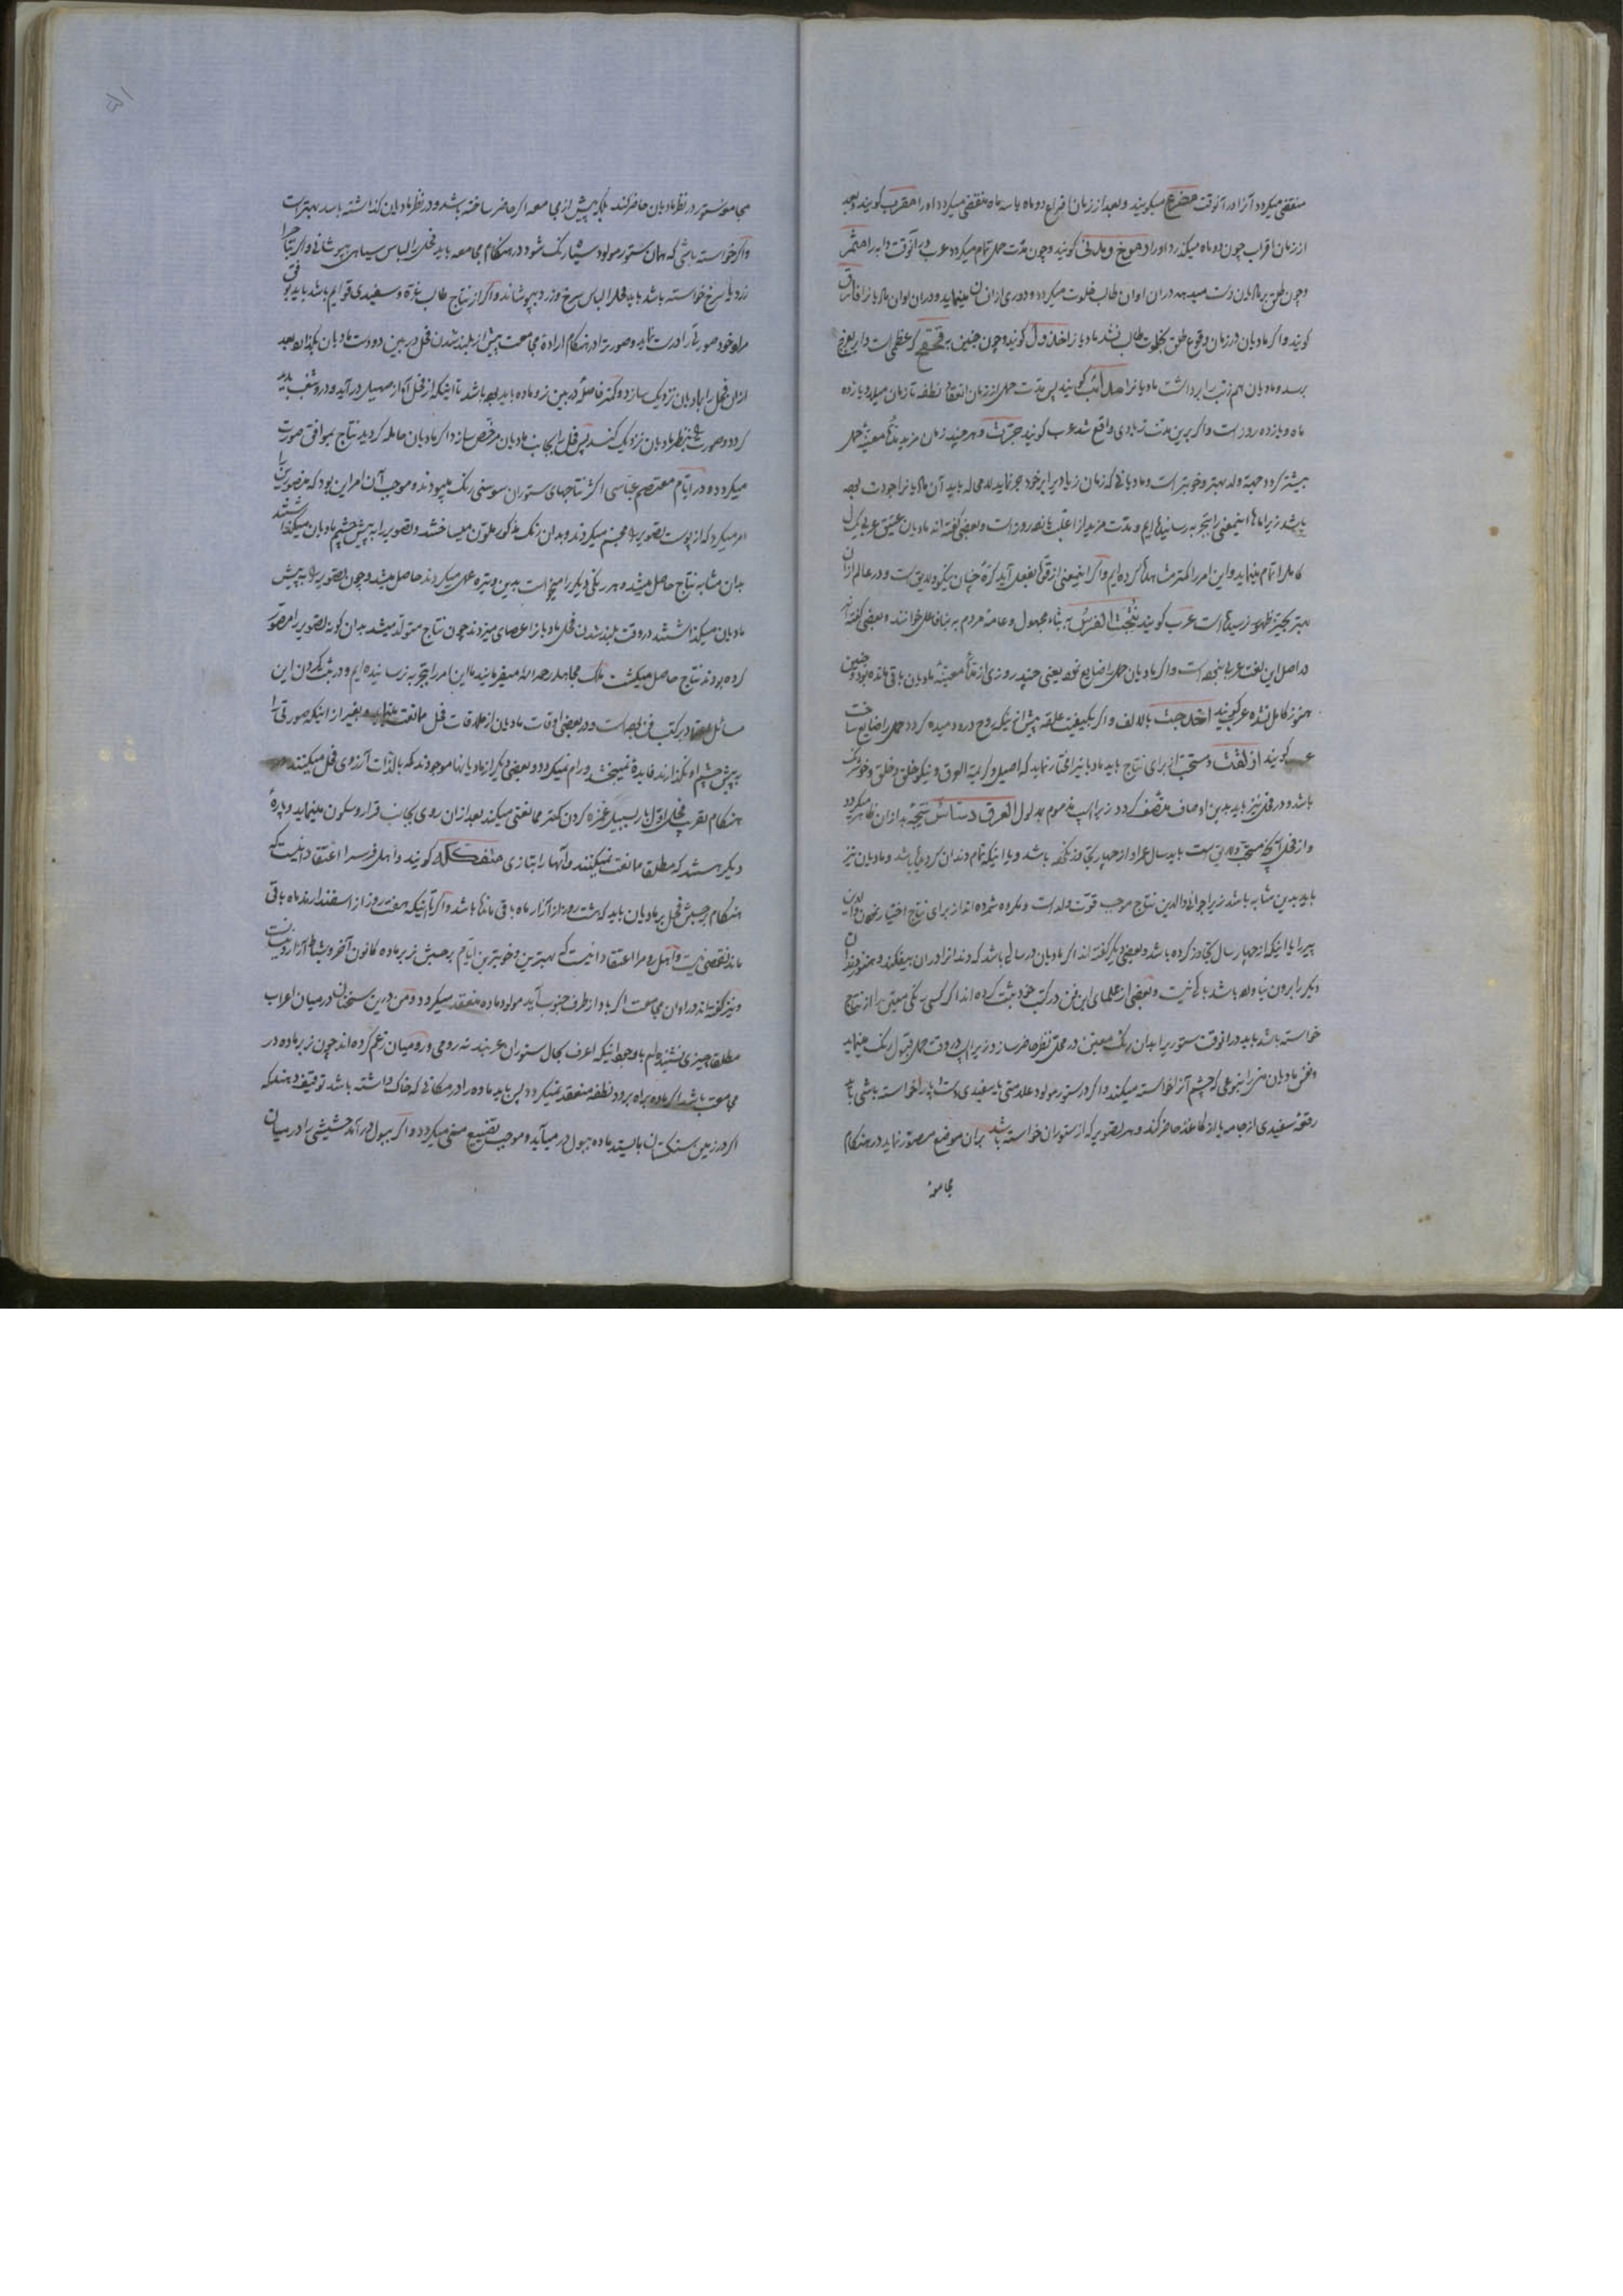 منقضی میکردد آنرا در آنوقت میکویند و بعد از زمان دو ماه یا سه ماه منقضی میکردد او را مقرب کویند و بعد
از زمان اقراب چون دو ماه میکذرد او را کویند و چون مدت حمل تمام میکردد عرب در آنوقت دابه را
و چون طلق بر مادیان دست میدهد در آن اوان طالب خلوت میکردد و دوری از مینماید و در آن اوان مادیانرا فارق
کویند و اکر مادیان در زمان وقوع طلق بخلوت طالب نشد مادیانرا کویند و چون جنین به که عظمی است
برسد و مادیان هم ذنب را برداشت مادیانرا کویند پس مدت حمل از زمان انعقاد نطفه تا زمان میلاد یازده
ماه و یازده روز است و اکر برین مدت زیادی واقع شد عرب کویند جرت و هر چند زمان مزید مدت معینهٔ حمل
بیشتر کردد جهة ولد بهتر و خوبتر است و مادیانی که زمان زیاد بر خود جر نماید لا محاله باید آن مادیانرا جودت بوده
باشد زیرا ماها اینمعنی را بتجربه رسانیده‌ایم و مدت مزید از اغلب پانزده روز است و بعضی کفته‌اند مادیان عتیق عربی یک سال
کامل را تمام مینماید و این امر را کمتر مشاهده کرده‌ایم و اکر اینمعنی از قوه بفعل آید کرهٔ چنان نیکو و لایق است و در عالم از آن
بهتر بحیز ظهور نرسیده است عرب کویند نتجت الفرس به بناء مجهول و عامهٔ مردم به بناء فاعل خوانند و بعضی کفته‌اند
در اصل این لغت عربی است و اکر مادیان حمل را ضایع نمود یعنی چند روزی از مدت معینهٔ مادیان باقی مانده بود و جنین
هنوز کامل نشده عرب کویند اخدجت بالالف و اکر بکیفیت علقه پیش از آنکه روح در او دمیده کردد حمل را ضایع ساخت
عرب کویند ازلقت و مستحب از برای نتاج باید مادیانیرا اختیار نماید که اصیل و کریمة العرق و نیکو خلق و خلق و خوشرنک
باشد و در فحل نیز باید بدین اوصاف متصف کردد زیرا اسپ مذموم بدلول العرق دساس نتیجه بد از آن ظاهر میکردد
و از فحل آنچه مستحب و لایق است باید سال عمر او از چهار تجاوز نکرده باشد و یا اینکه تمام دندان کرده باشد و مادیان نیز
باید بدین مشابه باشد زیرا جوانی والدین نتاج موجب قوت ولد است و مکروه شمرده‌اند از برای نتاج اختیار نمودن والدین
پیر را یا اینکه از چهار سال تجاوز کرده باشد و بعضی دیکر کفته‌اند اکر مادیان در سالی باشد که دندانرا در آن بیفکند و هنوز دندان
دیکر را برون نیاورده باشد باکی نیست و بعضی از علمای این فن در کتب خود ثبت کرده‌اند اکر کسی رنکی معین را از نتاج
خواسته باشد باید در آنوقت ستوریرا بدان رنک معین در محل نظر حاضر سازد زیرا اسپ در وقت حمل قبول رنک مینماید
و نفس مادیان متنی را بنوعی که چشم آنرا خواسته میکند و اکر در ستور مولود علامتی یا سفیدی دست و پا را خواسته باشی باید
رقعهٔ سفیدی از جامه یا از کاغذ حاضر کند و هر تصویر که از ستوران خواسته باشد بر آن موضع مصور نماید در هنکام
مجامعهٔ
مجامعه ستور در نظر مادیان حاضر کند بلکه پیش از مجامعه اکر حاضر ساخته باشد و در نظر مادیان کذاشته باشد بهتر است
و اکر خواسته باشی که همان ستور مولود سیاه رنک شود در هنکام مجامعه باید فحل را لباس سیاهی بپوشانی و اکر نتاج را
زرد یا سرخ خواسته باشد باید فحل را لباس سرخ و زرد بپوشاند و اکر از نتاج طالب غره و سفیدی قوائم باشد باید موافق
مراد خود صورتی را درست نماید و صورت را در هنکام ارادهٔ مجامعت پیش از بلند شدن فحل در بین دو دست مادیان بکذارد و بعد
از آن فحل را بمادیان نزدیک سازد و کمتر فاصلهٔ در بین نر و ماده باید بوده باشد تا اینکه از فحل آواز صهیل در آید و در وشغب پدید
کردد و صورت را بنظر مادیان نزدیک کند پس فحل را بجانب مادیان مرخص سازد اکر مادیان حامله کردید نتاج بموافق صورت
میکردد و در ایام معتصم عباسی اکثر نتاجهای ستوران سوسنی رنک میبودند و موجب آن امر این بود که مصورین را
امر میکرد که از پوست تصویر را مجسم میکردند و بدان رنک مذکور ملون میساختند و تصویر را به پیش چشم مادیان میکذاشتند
بدان مشابه نتاج حاصل میشد و هر رنکی دیکر را میخواست بدین وتیره عمل میکردند حاصل میشد و چون تصویر را به پیش
مادیان میکذاشتند در وقت بلند شدن فحل مادیانرا عصای میزدند چون نتاج متولد میشد بدان کونه تصویر را مصور
کرده بودند نتاج حاصل میکشت ملک مجاهد رحمه الله میفرمایند ما این امر را بتجربه نرسانیده‌ایم و در ثبت کردن این
مسائل در کتب فن بوده است و در بعضی اوقات مادیان از ملاقات فحل ممانعت مینماید و بغیر از اینکه صورتی را
به پیش چشم او نکذارند فایدهٔ نمیبخشد و رام نمیکردد و بعضی دیکر از مادیانها موجودند که بالذات آرزوی فحل میکنند
هنکام تقرب فحل اول بار بسبیل غمزه کردن کمتر ممانعتی میکند بعد از آن روی بجانب قرار و سکون مینماید و پارهٔ
دیکر هستند که مطلق ممانعت نمیکنند و آنها را بتازی کویند و اهل فرس را اعتقاد اینست که
هنکام برجستن فحل بر مادیان باید که هشت روز از آزار ماه باقی مانده باشد و اکر تا اینکه هفت روز از اسفندارمذ ماه باقی
ماند نقصی نیست و اهل روم را اعتقاد اینست که بهترین و خوبترین ایام برجستن نر بر ماده کانون آخر و شباط و آزار و نیسان
و نیز کفته‌اند در اوان مجامعت اکر باد از طرف جنوب آید مولود ماده منعقد میکردد و من در این سخنان در میان اعراب
مطلقا چیزی نشنیده‌ام با وجود اینکه اعرف بحال ستوران عربند نه رومی و رومیان زعم کرده‌اند چون نر بر ماده در
مجامعت باشد اکر ماده براه برود نطفه منعقد نمیکردد پس باید ماده را در مکانی که خاک داشته باشد توقیف دهند که
اکر در زمین سنکستان بایستد ماده ببول در میآید و موجب تضییع منی میکردد و اکر ببول در آمد حشیشی را در میان